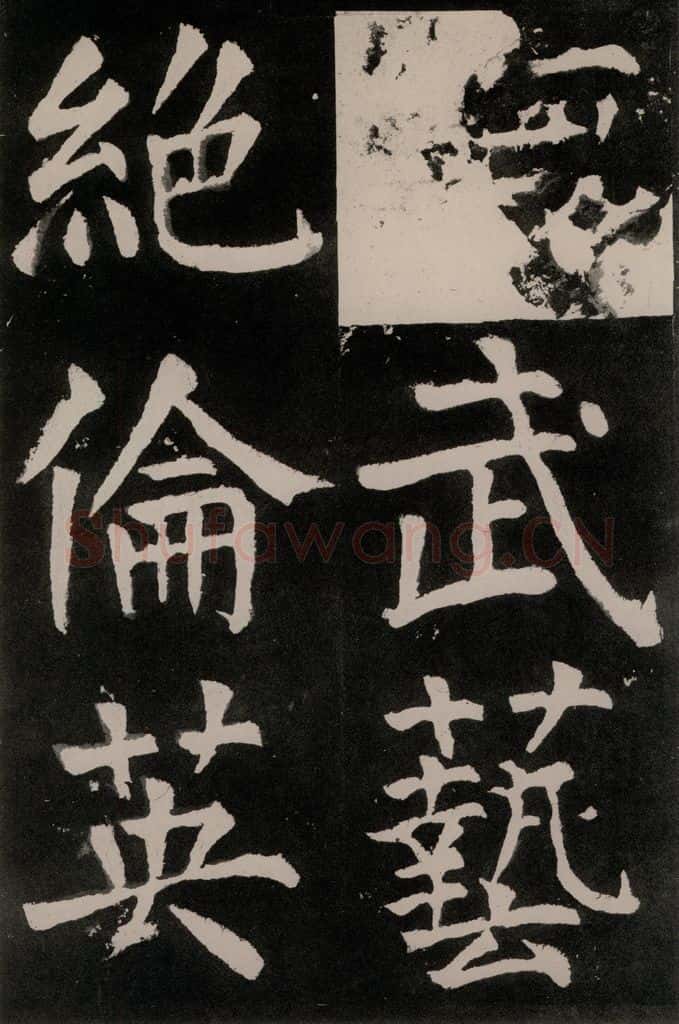 武藝
絶倫英
Shufawang.CN